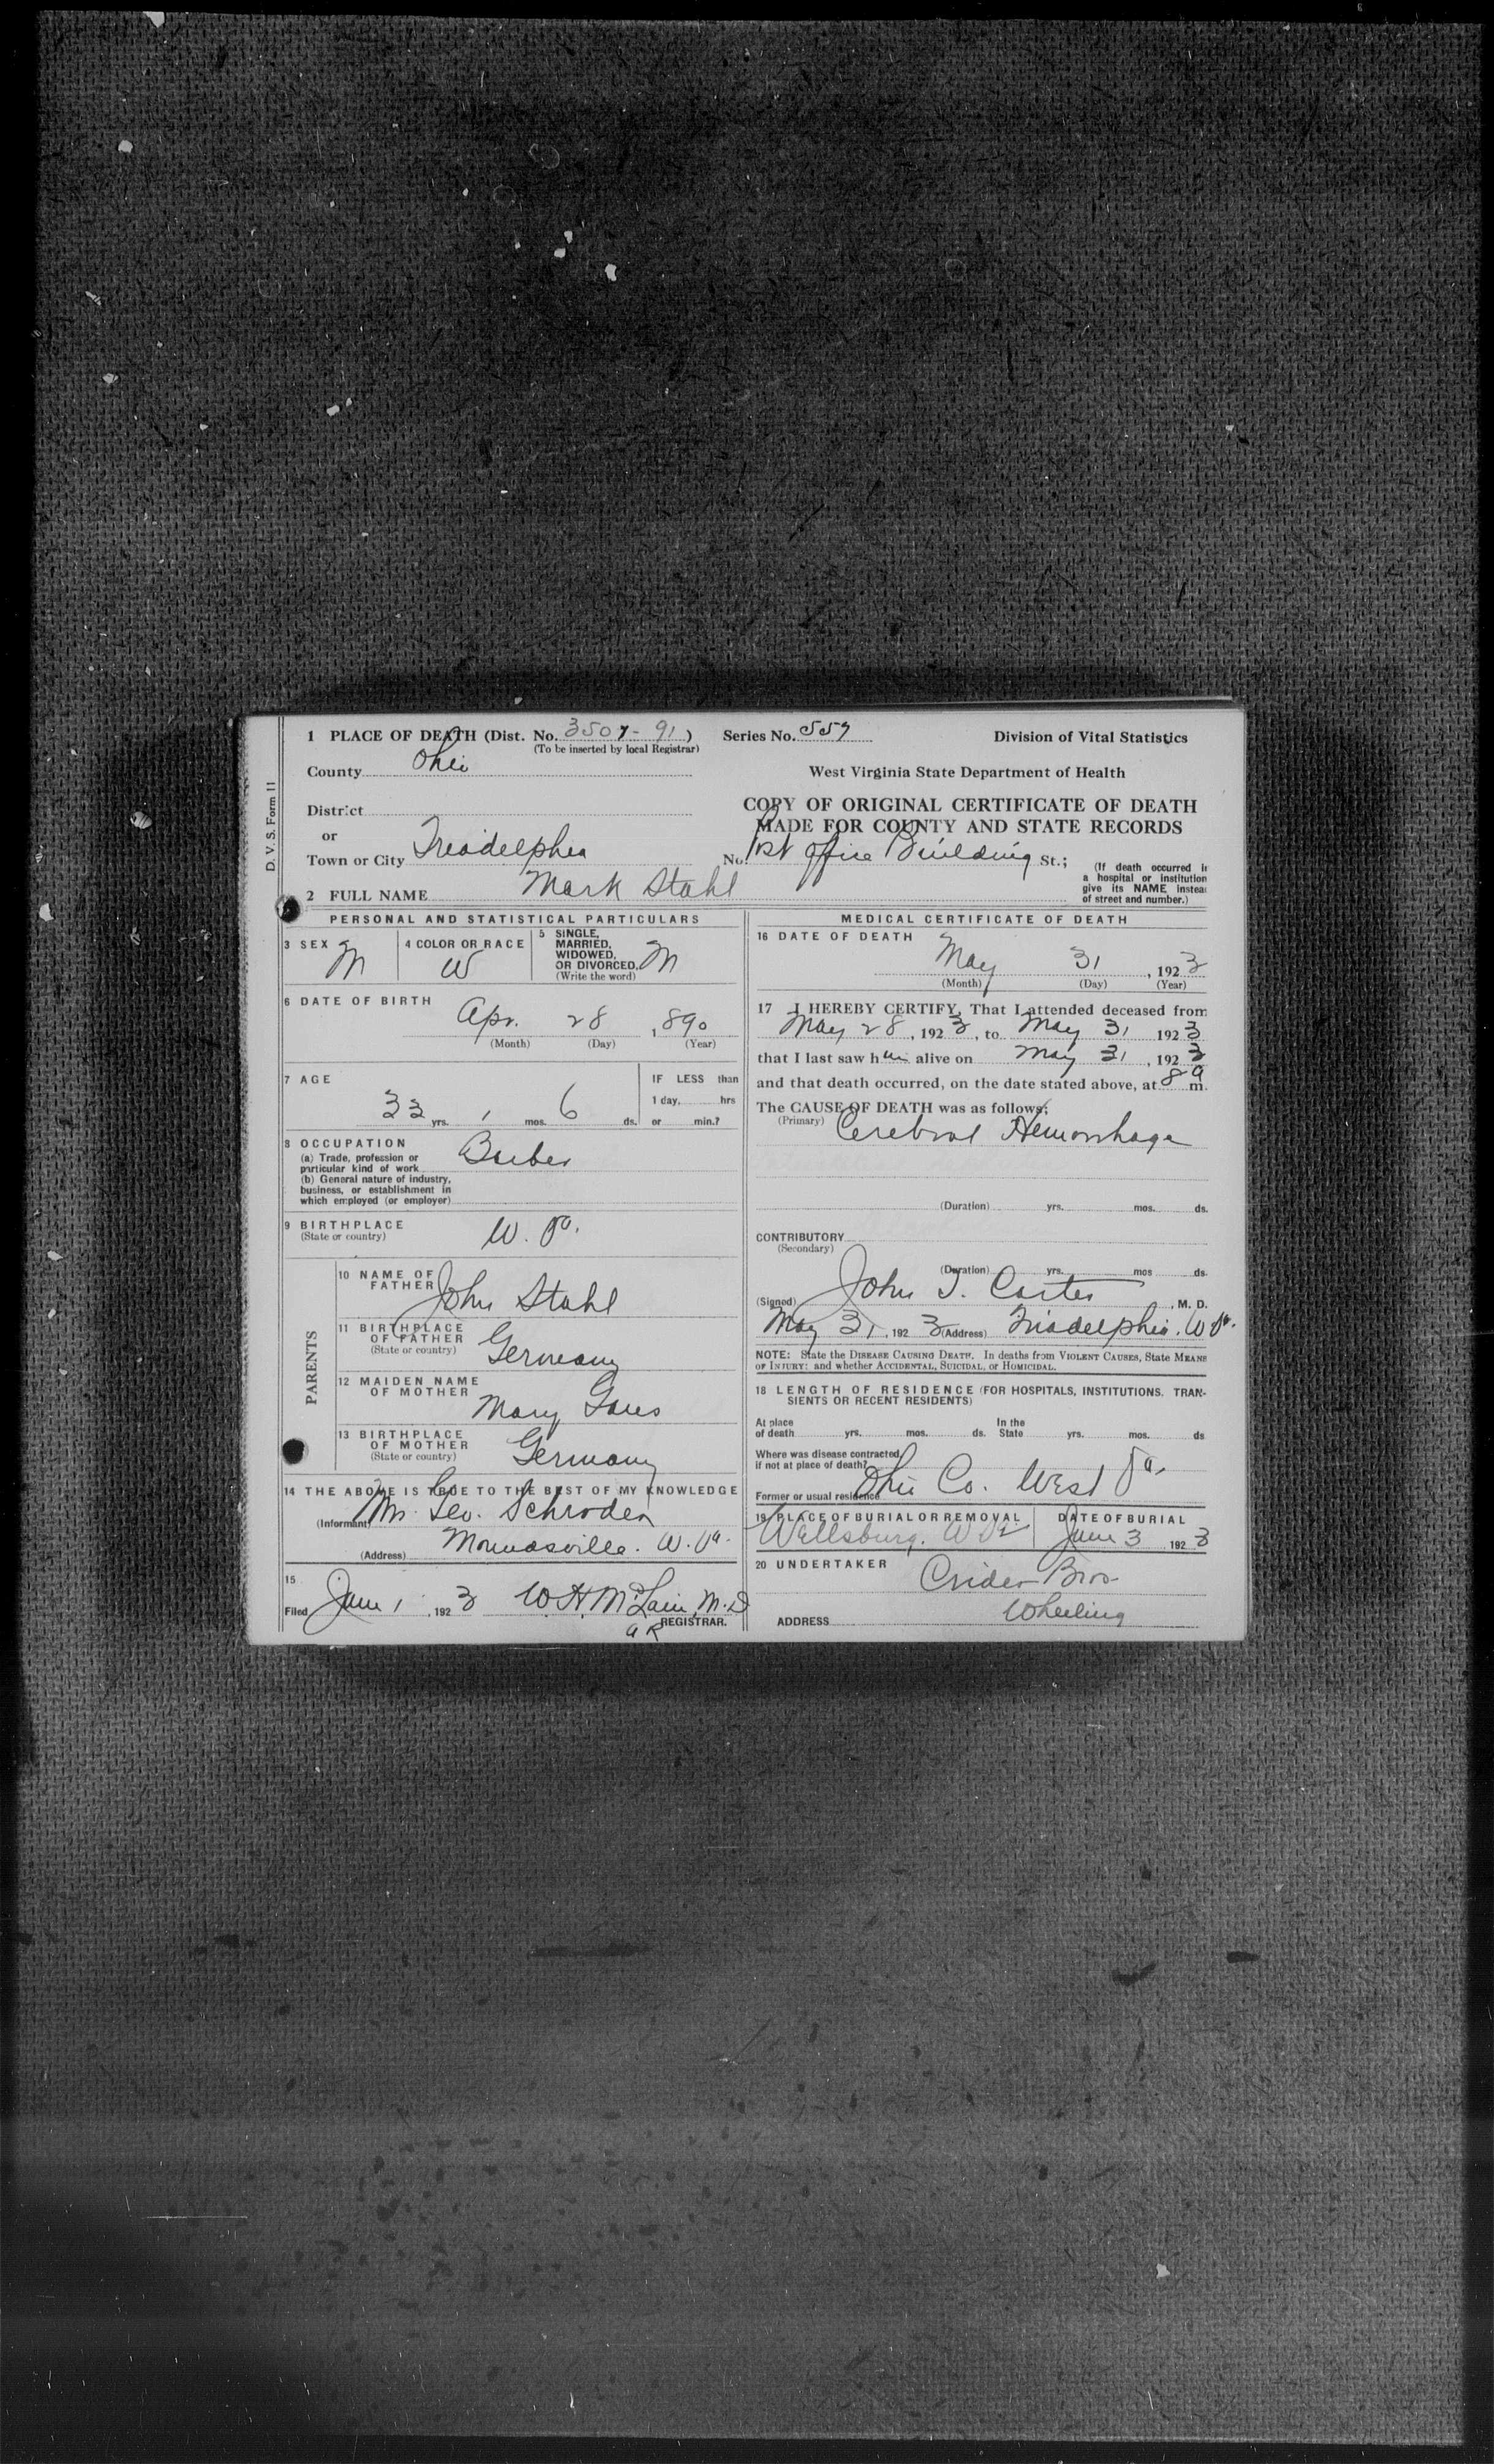 D. V. S. Form 11
1 PLACE OF DEATH (Dist. No. 3507-91)
(To be inserted by local Registrar)
Series No. 557
Division of Vital Statistics
County Ohio
West Virginia State Department of Health
District
or
Town or City Triadelphia
COPY OF ORIGINAL CERTIFICATE OF DEATH
MADE FOR COUNTY AND STATE RECORDS
No. Post Office Building St.;
(If death occurred i
a hospital or institution
give its NAME instea
of street and number.)
2 FULL NAME Mark Stahl
PERSONAL AND STATISTICAL PARTICULARS
3 SEX M
4 COLOR OR RACE W
5 SINGLE,
MARRIED,
WIDOWED,
OR DIVORCED. M
(Write the word)
6 DATE OF BIRTH
Apr. 28 , 890
(Month) (Day) (Year)
7 AGE
33 yrs. 1 mos. 6 ds.
IF LESS than
1 day, hrs
or min.?
8 OCCUPATION
(a) Trade, profession or
particular kind of work Barber
(b) General nature of industry,
business, or establishment in
which employed (or employer)
9 BIRTHPLACE
(State or country) W. Va.
PARENTS
10 NAME OF
FATHER John Stahl
11 BIRTHPLACE
OF FATHER
(State or country) Germany
12 MAIDEN NAME
OF MOTHER Mary
13 BIRTHPLACE
OF MOTHER
(State or country) Germany
14 THE ABOVE IS TRUE TO THE BEST OF MY KNOWLEDGE
(Informant) Geo. Schroder
(Address) W. Va.
15
Filed June 1, 1923 W. H. McLain, M.D
REGISTRAR.
MEDICAL CERTIFICATE OF DEATH
16 DATE OF DEATH
May 31, 1923
(Month) (Day) (Year)
17 I HEREBY CERTIFY, That I attended deceased from
May 28, 1923, to May 31 1923
that I last saw him alive on May 31, 1923
and that death occurred, on the date stated above, at 8 a m.
The CAUSE OF DEATH was as follows;
(Primary) Cerebral Hemorrhage
(Duration) yrs. mos. ds.
CONTRIBUTORY
(Secondary)
(Duration) yrs. mos ds.
(Signed) John J. Carter, M. D.
May 31, 1923 (Address) Triadelphia. W Va.
NOTE: State the DISEASE CAUSING DEATH. In deaths from VIOLENT CAUSES, State MEANS
OF INJURY: and whether ACCIDENTAL, SUICIDAL, or HOMICIDAL.
18 LENGTH OF RESIDENCE (FOR HOSPITALS, INSTITUTIONS, TRAN-
SIENTS OR RECENT RESIDENTS)
At place
of death yrs. mos. ds.
In the
State yrs. mos. ds
Where was disease contracted,
if not at place of death?
Former or usual residence Ohio Co. West Va.
19 PLACE OF BURIAL OR REMOVAL
Wellsburg, W Va
DATE OF BURIAL
June 3 1923
20 UNDERTAKER
Crider Bros
ADDRESS Wheeling